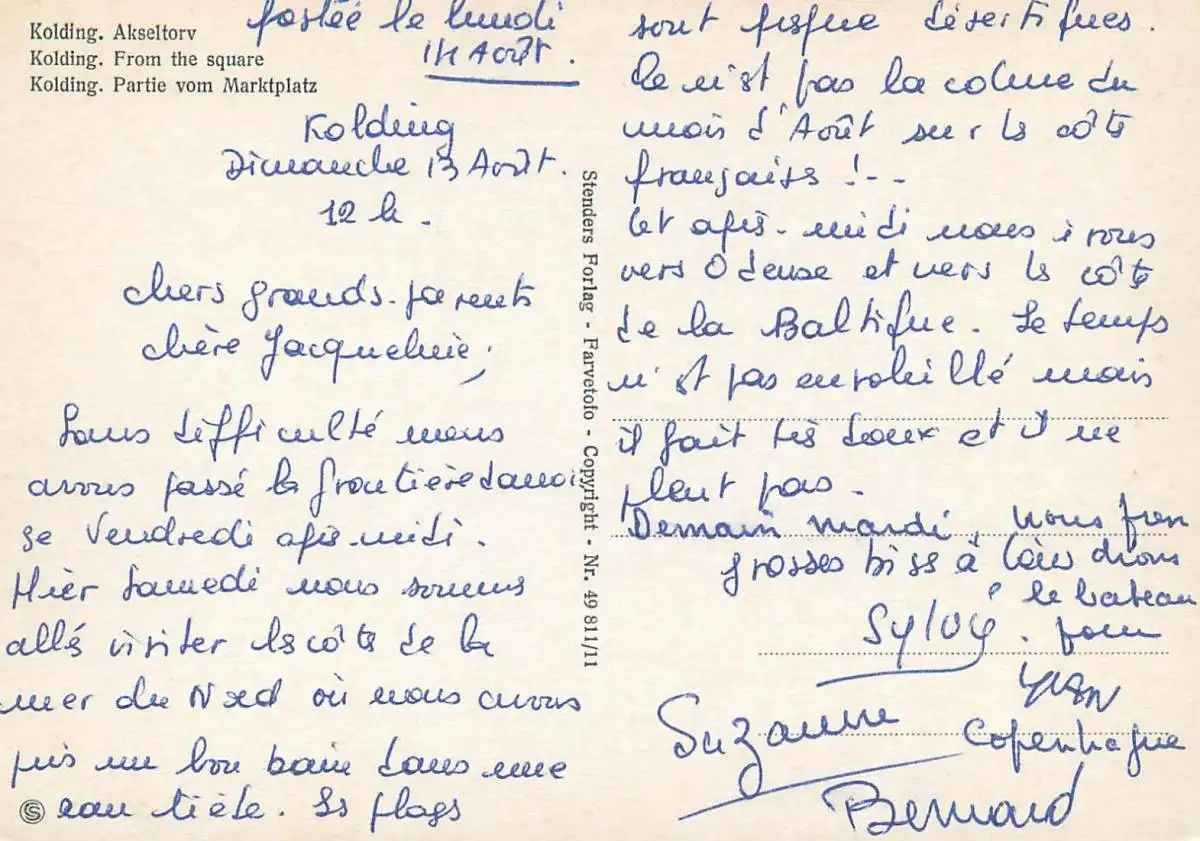 Kolding. Akseltorv
Kolding. From the square
Kolding. Partie vom Marktplatz
postée le lundi
14 Août.
Kolding
Dimanche 13 Août.
12 h.
chers grands-parents
chère Jacqueline,
Sans difficulté nous
avons passé la frontière danoi
se Vendredi après-midi.
Hier Samedi nous sommes
allés visiter les côtes de la
mer du Nord où nous avons
pris un bon bain dans une
eau tiède. Les plages
Stenders Forlag - Farvefoto - Copyright - Nr. 49 811/11
sont presque désertiques.
Ce n'est pas la cohue du
mois d'Août sur les côtes
françaises !--
Cet après-midi nous irons
vers Odense et vers les côtes
de la Baltique. Le temps
n'est pas ensoleillé mais
il fait très doux et il ne
pleut pas.
Demain mardi, nous pren
drons
le bateau
pour
Copenhague
grosses bises à tous
Sylvie.
Suzanne
Bernard